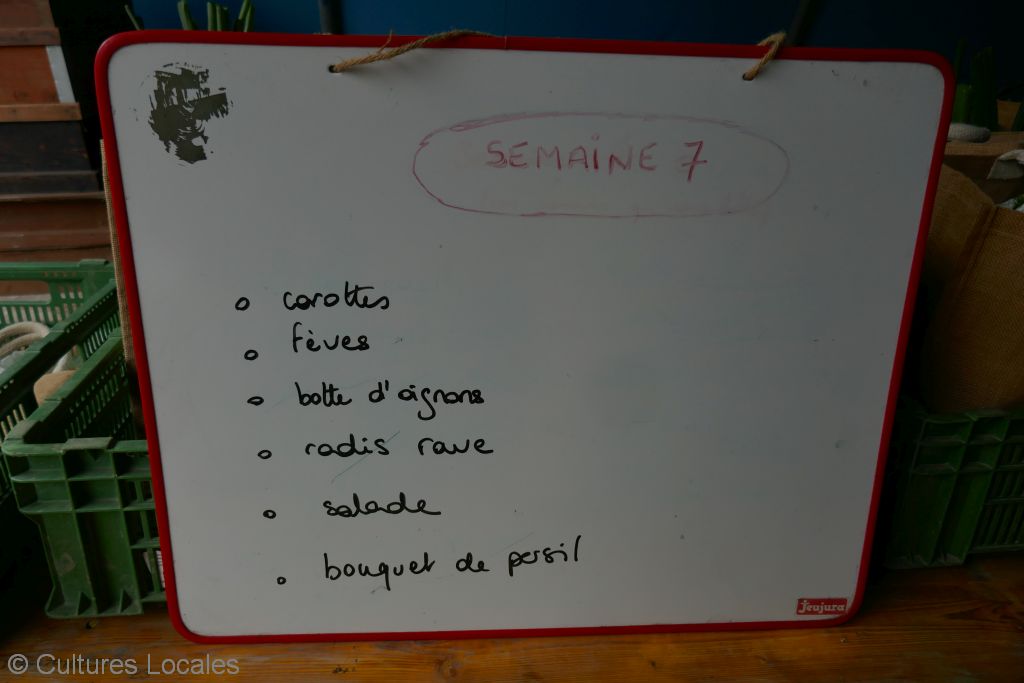 SEMAINE 7
carottes
fèves
botte d'oignons
radis rave
salade
bouquet de persil
Jeujura
© Cultures Locales